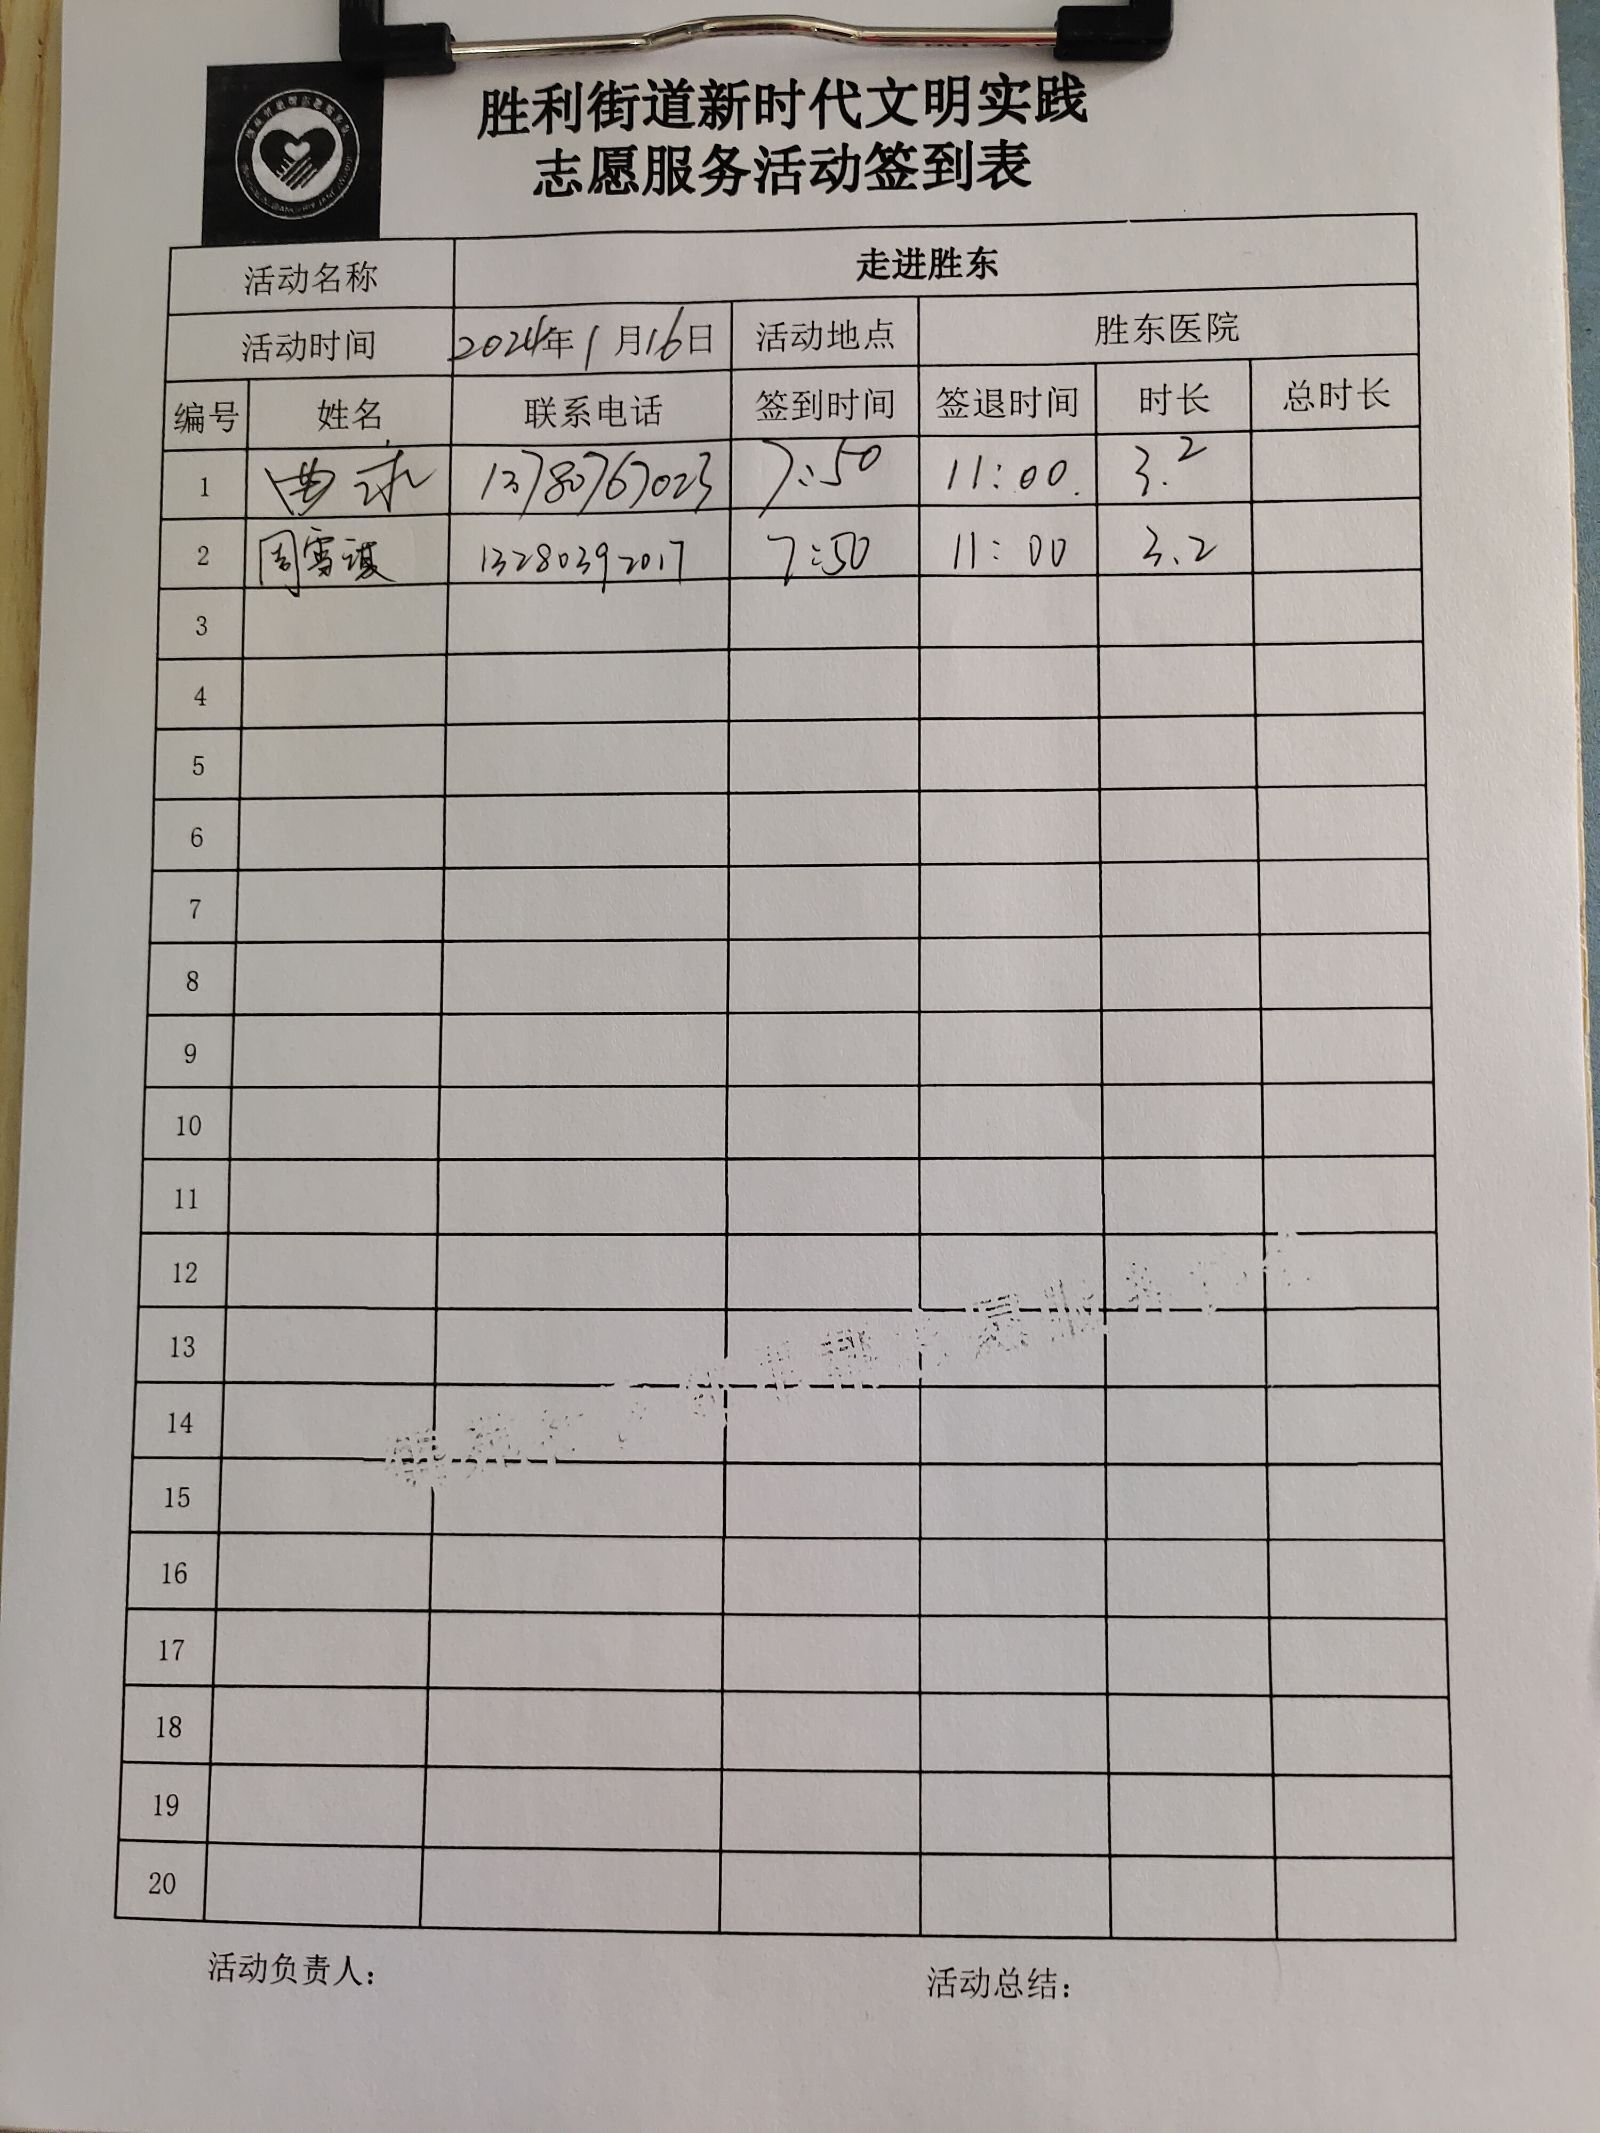 胜利街道新时代文明实践
志愿服务活动签到表
活动名称 走进胜东
活动时间 2024年1月16日 活动地点 胜东医院
编号 姓名 联系电话 签到时间 签退时间 时长 总时长
1 13780767023 7:50 11:00 3.2
2 周雪 13280392017 7:50 11:00 3.2
3
4
5
6
7
8
9
10
11
12
13
14
15
16
17
18
19
20
活动负责人：
活动总结：